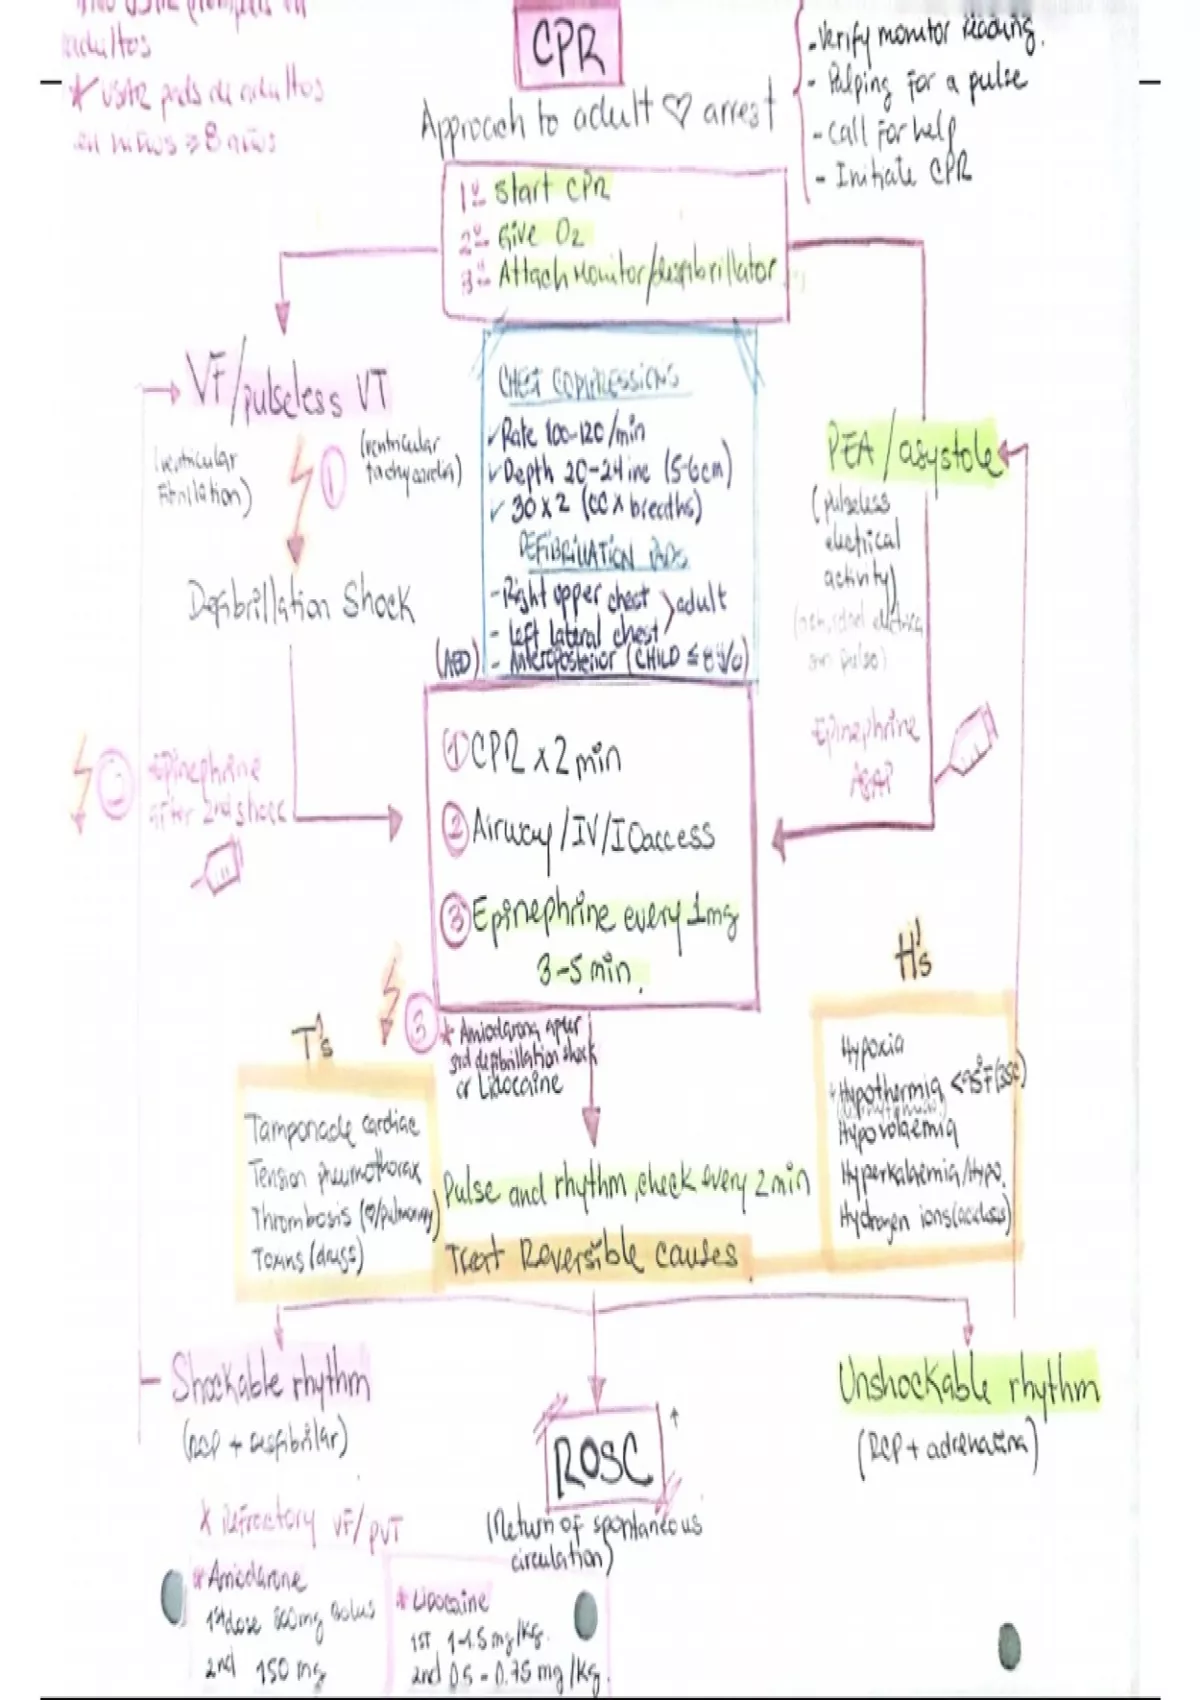 adultos
* USAR pads de adultos
en niños ≥ 8 años
CPR
Approach to adult ♡ arrest
- Verify monitor reading.
- Palping for a pulse
- Call for help
- Initiate CPR
1º Start CPR
2º Give O2
3º Attach Monitor/desfibrillator
VF/pulseless VT
(ventricular
Fibrilation)
(ventricular
tachycardia)
1
Defibrillation Shock
CHEST COMPRESSIONS
✓ Rate 100-120/min
✓ Depth 20-24 inc (5-6cm)
✓ 30 x 2 (CC x breaths)
DEFIBRILLATION PADS
- Right upper chest > adult
- Left lateral chest
(AED) - Anteroposterior (CHILD ≤ 8 y/o)
PEA/asystole
(pulseless
electrical
activity)
sin pulso)
Epinephrine
ASAP
2
Epinephrine
after 2nd shock
① CPR x 2 min
② Airway/IV/IO access
③ Epinephrine every 1mg
3-5 min.
3
* Amiodarone after
3rd defibrillation shock
or Lidocaine
T's
Tamponade cardiac
Tension pneumothorax
Thrombosis (♡/pulmonary)
Toxins (drugs)
H's
Hypoxia
Hypothermia <95°F (35C)
Hypovolaemia
Hyperkalaemia/Hypo.
Hydrogen ions (acidosis)
Pulse and rhythm check every 2 min
Treat Reversible causes
Shockable rhythm
(RCP + desfibrilar)
ROSC
(Return of spontaneous
circulation)
Unshockable rhythm
(RCP + adrenalina)
* Refractory VF/pVT
* Amiodarone
1st dose 300mg Bolus
2nd 150 mg
* Lidocaine
1ST 1-1.5 mg/Kg.
2nd 0.5 - 0.75 mg/Kg.